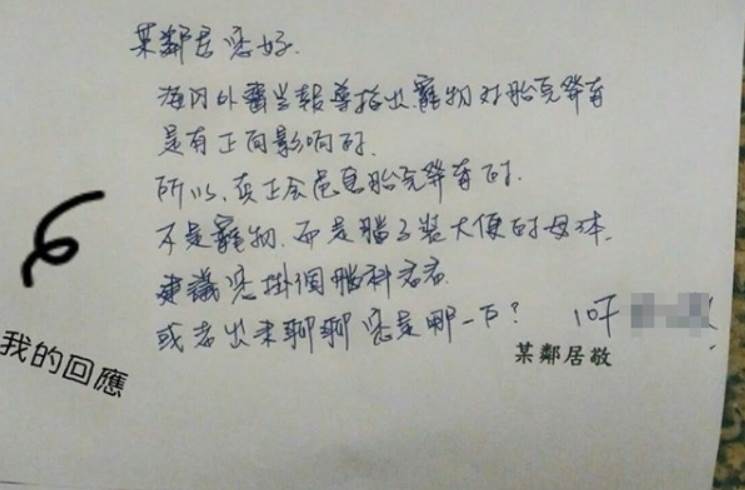 某鄰居您好.
海內外醫學報導指出寵物对胎兒發育
是有正向影响的.
所以,真正会危害胎兒發育的.
不是寵物.而是腦子裝大便的母体.
建議您掛個腦科看看.
或者出来聊聊您是哪一下? 10F
某鄰居敬
我的回應